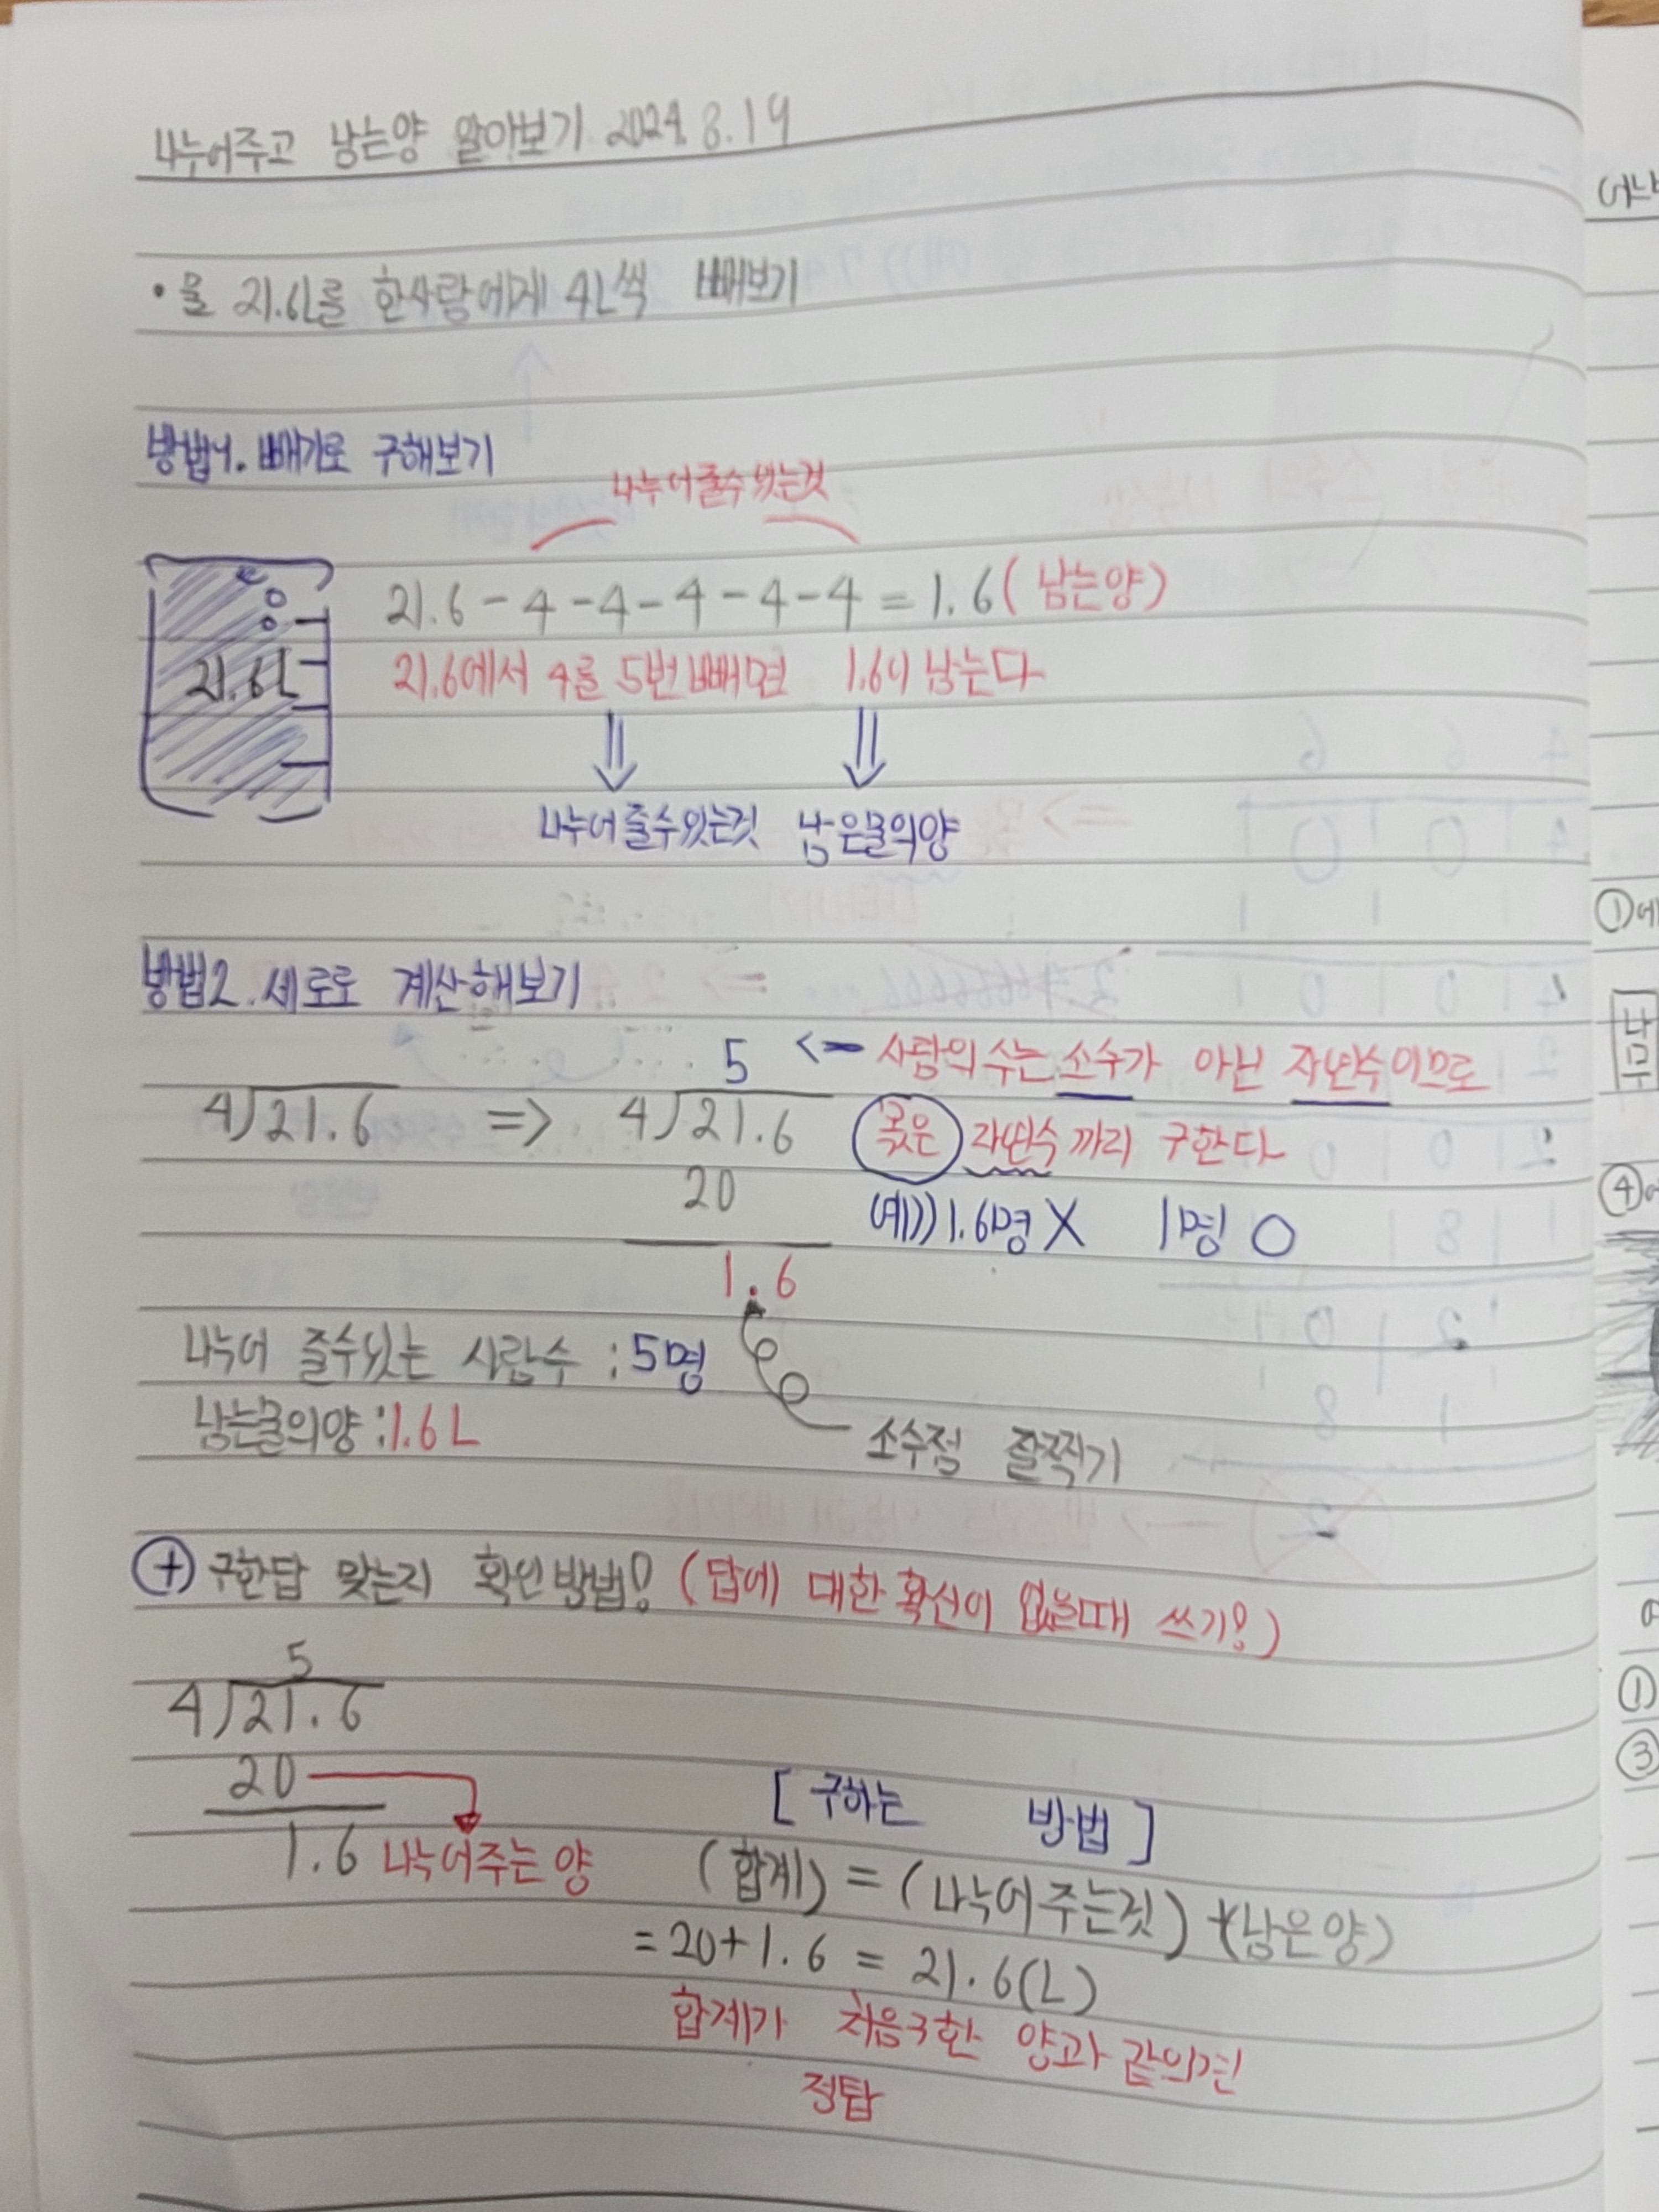 나누어주고 남는양 알아보기 2024. 8. 19
• 물 21.6L를 한사람에게 4L씩 빼보기
방법1. 빼기로 구해보기
나누어줄수있는것
21.6 - 4 - 4 - 4 - 4 - 4 = 1.6 (남는양)
21.6L
21.6에서 4를 5번빼면 1.6이 남는다
나누어줄수있는것 남은물의양
방법2. 세로로 계산해보기
5 <- 사람의수는 소수가 아닌 자연수이므로
4)21.6 => 4)21.6 몫은 자연수까지 구한다
20 예))1.6명 X 1명 O
1.6
나누어 줄수있는 사람수 : 5명
남는물의양 : 1.6L
소수점 잘찍기
+ 구한답 맞는지 확인방법! (답에 대한 확신이 없을때 쓰기!)
5
4)21.6
20
[구하는 방법]
1.6 나누어주는양
(합계) = (나누어주는것) + (남은양)
= 20+1.6 = 21.6(L)
합계가 처음구한 양과 같의면
정답